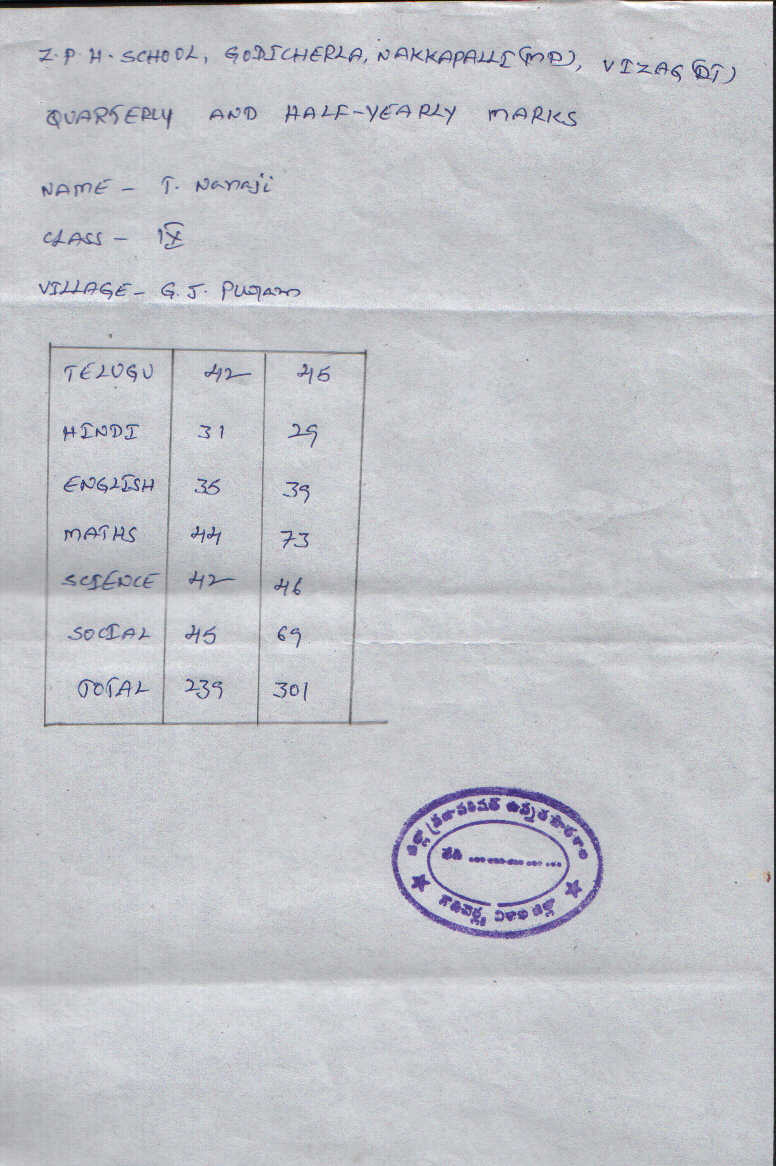 Z.P.H. SCHOOL, GODICHERLA, NAKKAPALLI (MD), VIZAG (DT)
QUARTERLY AND HALF-YEARLY MARKS
NAME - T. Nanaji
CLASS - IX
VILLAGE - G.J. Puram
TELUGU 42 45
HINDI 31 29
ENGLISH 35 39
MATHS 44 73
SCIENCE 42 46
SOCIAL 45 69
TOTAL 239 301
జిల్లా ప్రజాపరిషత్ ఉన్నత పాఠశాల
తేది ..................
గొడిచెర్ల, విశాఖ జిల్లా